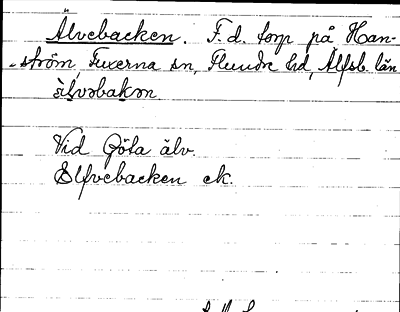 Älvebacken. F. d. torp på Han-
-ström, Fuxerna sn, Flundre hd, Älfsb. län
älvəbakən
Vid Göta älv.
Elfvebacken ek.